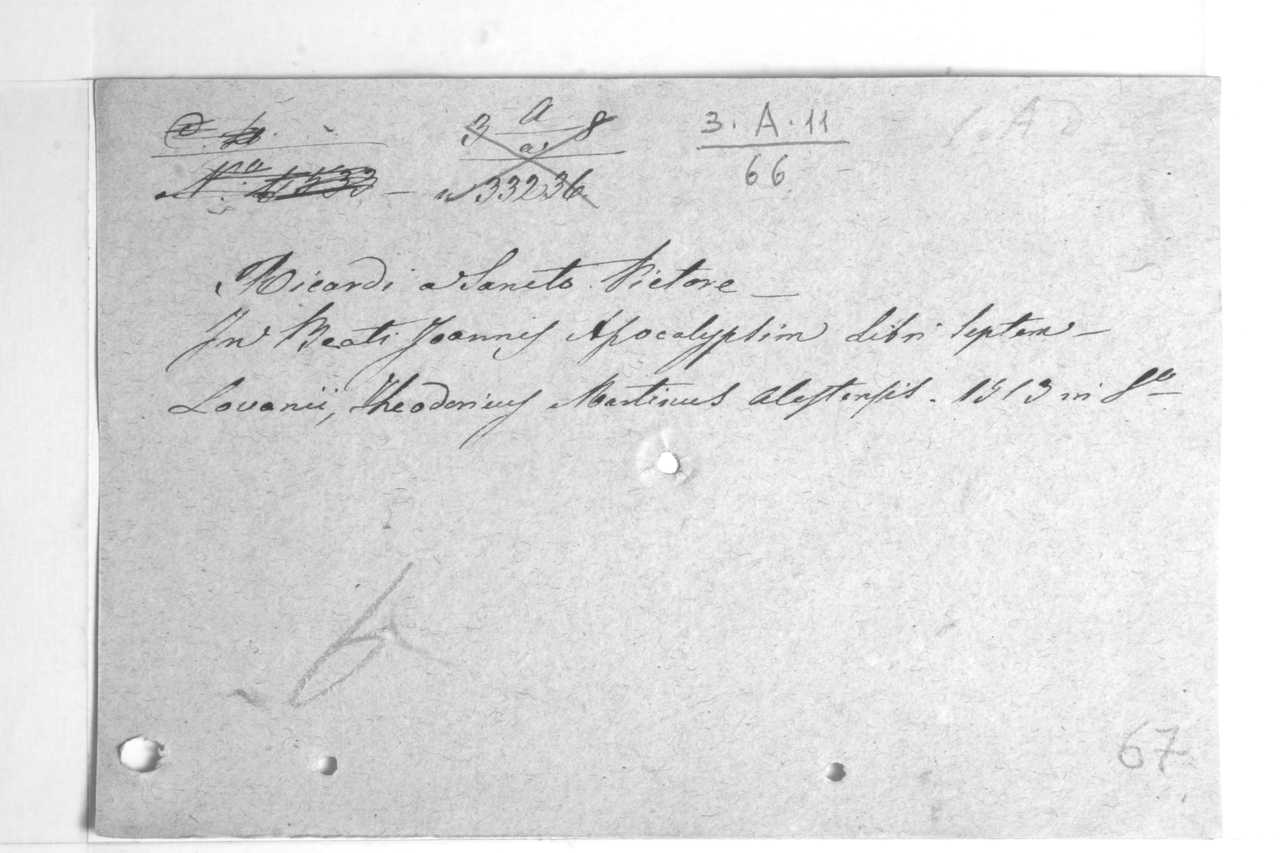 3 A 8
a
33236
3. A. 11
66
Ricardi a Sancto Victore —
In Beati Joannis Apocalypsim libri septem —
Lovanii, Theodoricus Martinus Alostensis. 1513 in 8º —
67